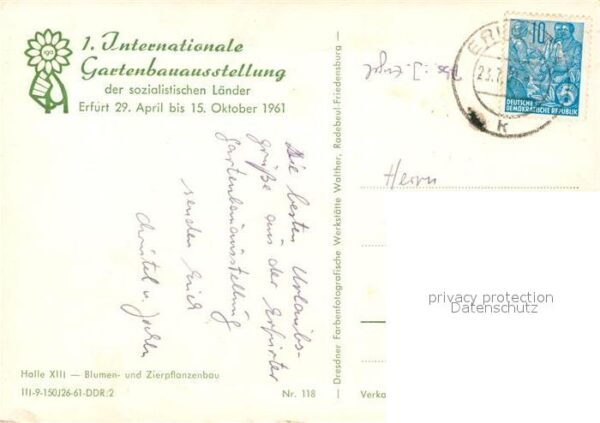 iga
1. Internationale
Gartenbauausstellung
der sozialistischen Länder
Erfurt 29. April bis 15. Oktober 1961
Die besten Urlaubs-
grüße aus der Erfurter
Gartenbauausstellung
senden Euch
Christel u. Jochen
Halle XIII — Blumen- und Zierpflanzenbau
III-9-150J26-61-DDR:2
Nr. 118
Dresdner Farbenfotografische Werkstätte Walther, Radebeul-Friedensburg
10
5
DEUTSCHE
DEMOKRATISCHE REPUBLIK
23.7.
k
Herrn
privacy protection
Datenschutz